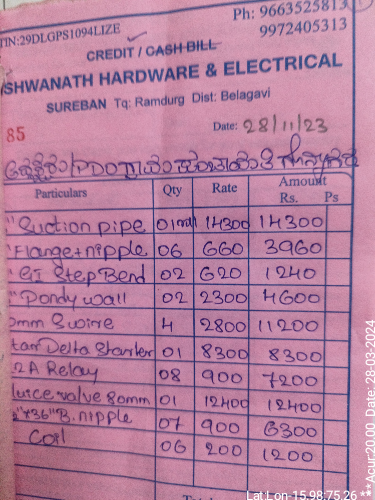 TIN:29DLGPS1094LIZE
Ph: 9663525813
9972405313
CREDIT / CASH BILL
SHWANATH HARDWARE & ELECTRICAL
SUREBAN Tq: Ramdurg Dist: Belagavi
85 Date: 28/11/23
Particulars Qty Rate Amount
Rs. Ps
" Suction pipe 01 14300 14300
" Flange+nipple 06 660 3960
" GI Step Bend 02 620 1240
" Pondy wall 02 2300 4600
mm Swire 4 2800 11200
tar Delta Starter 01 8300 8300
2A Relay 08 900 7200
luice valve 80mm 01 12400 12400
"*36" B. nipple 07 900 6300
Coil 06 200 1200
Lat Lon-15.98:75.26 *** Acur:20.00 Date: 28-03-2024